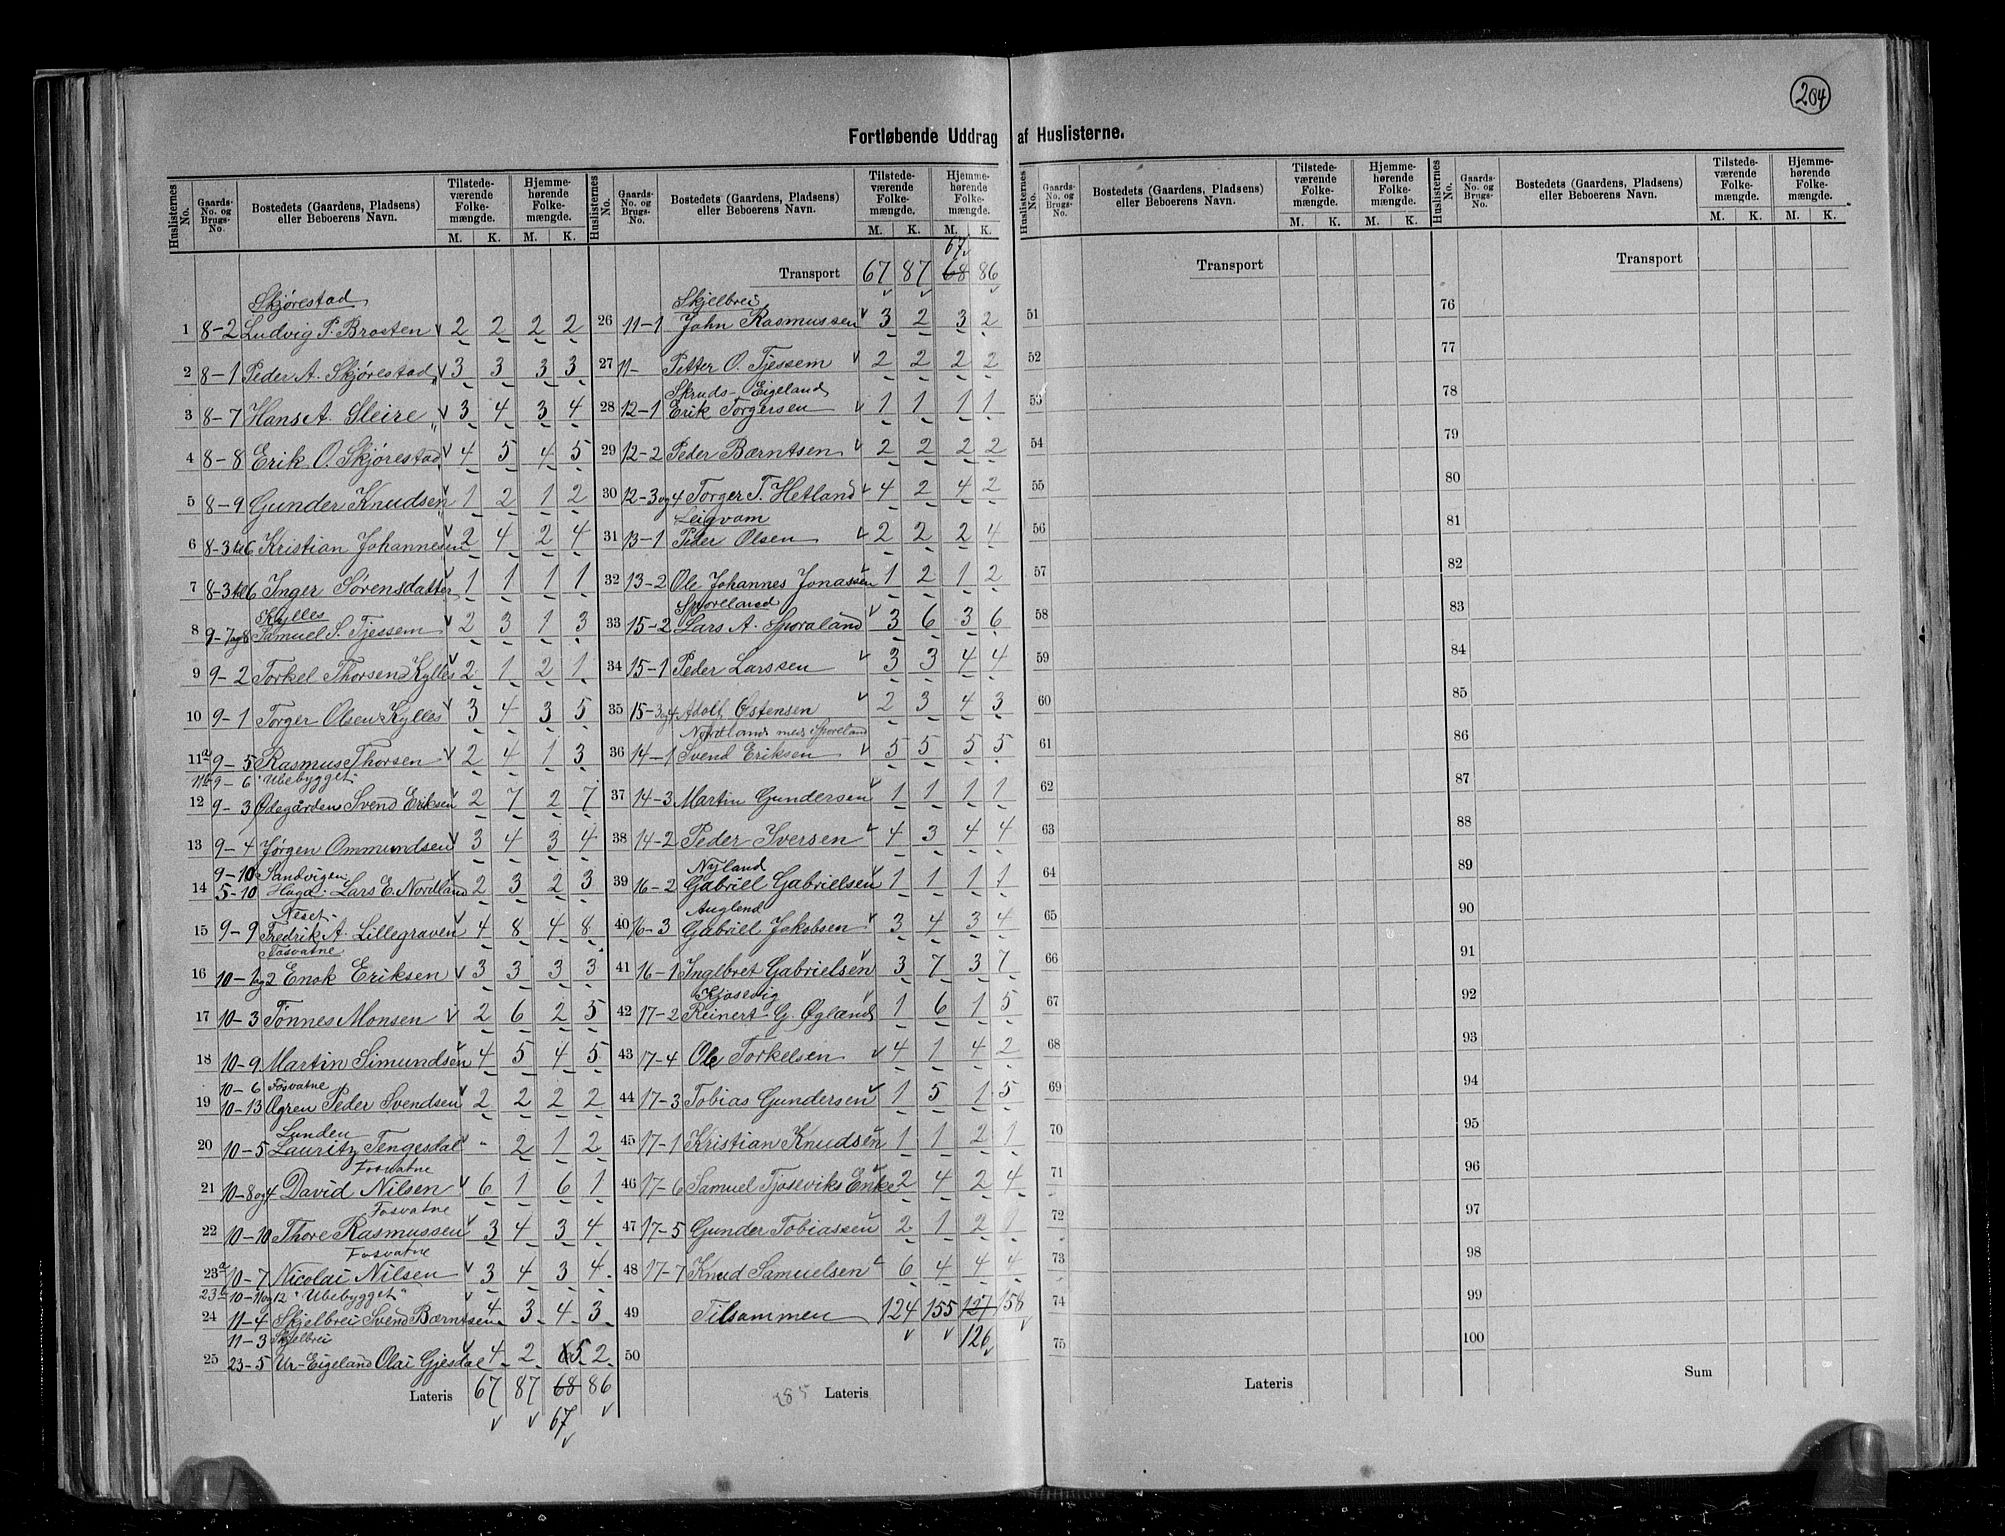 204
Fortløbende Uddrag af Huslisterne.
Huslisternes No. Gaards-No. og Brugs-No. Bostedets (Gaardens, Pladsens) eller Beboerens Navn. Tilstedeværende Folkemængde. M. K. Hjemmehørende Folkemængde. M. K.
Skjørestad
1 8-2 Ludvig P. Brosten 2 2 2 2
2 8-1 Peder A. Skjørestad 3 3 3 3
3 8-7 Hans A. Sleire 3 4 3 4
4 8-8 Erik O. Skjørestad 4 5 4 5
5 8-9 Gunder Knudsen 1 2 1 2
6 8-3 til 6 Kristian Johannesen 2 4 2 4
7 8-3 til 6 Inger Sørensdatter 1 1 1 1
Kylles
8 9-7og8 Samuel S. Tjessem 2 3 1 3
9 9-2 Torkel Thorsen Kylles 2 1 2 1
10 9-1 Torger Olsen Kylles 3 4 3 5
11a 9-5 Rasmus Thorsen 2 4 1 3
11b 9-6 "Ubebygget"
12 9-3 Ødegården Svend Eriksen 2 7 2 7
13 9-4 Jørgen Ommundsen 3 4 3 4
9-10 Sandvigen
14 5-10 Haga: Lars E. Nordland 2 3 2 3
Neset
15 9-9 Fredrik A. Lillegraven 4 8 4 8
Fosvatne
16 10-1og2 Enok Eriksen 3 3 3 3
17 10-3 Tønnes Monsen 2 6 2 5
18 10-9 Martin Simundsen 4 5 4 5
10-6 Fosvatne
19 10-13 Ogren Peder Svendsen 2 2 2 2
Lunden
20 10-5 Lauritz Tengesdal - 2 1 2
Fosvatne
21 10-8og4 David Nilsen 6 1 6 1
Fosvatne
22 10-10 Thore Rasmussen 3 4 3 4
Fosvatne
23a 10-7 Nicolai Nilsen 3 4 3 4
23b 10-11og12 "Ubebygget"
24 11-4 Skjelbrei Svend Bærntsen 4 3 4 3
11-3 Skjelbrei
25 23-5 Ur-Eigeland Olai Gjesdal 4 2 5 2
Lateris 67 87 68 86
67
Huslisternes No. Gaards-No. og Brugs-No. Bostedets (Gaardens, Pladsens) eller Beboerens Navn. Tilstedeværende Folkemængde. M. K. Hjemmehørende Folkemængde. M. K.
67
Transport 67 87 68 86
Skjelbrei
26 11-1 John Rasmussen 3 2 3 2
27 11- Petter O. Tjessem 2 2 2 2
Skruds-Eigeland
28 12-1 Erik Torgersen 1 1 1 1
29 12-2 Peder Bærntsen 2 2 2 2
30 12-3og4 Torger T. Hetland 4 2 4 2
Leigvam
31 13-1 Peder Olsen 2 2 2 4
32 13-2 Ole Johannes Jonassen 1 2 1 2
Sporeland
33 15-2 Lars A. Sporaland 3 6 3 6
34 15-1 Peder Larssen 3 3 4 4
35 15-3og4 Adolf Østensen 2 3 4 3
Nordland med Sporeland
36 14-1 Svend Eriksen 5 5 5 5
37 14-3 Martin Gundersen 1 1 1 1
38 14-2 Peder Iversen 4 3 4 4
Nyland
39 16-2 Gabriel Gabrielsen 1 1 1 1
Auglend
40 16-3 Gabriel Jakobsen 3 4 3 4
41 16-1 Ingebret Gabrielsen 3 7 3 7
Kjosevig
42 17-2 Reinert G. Øgland 1 6 1 5
43 17-4 Ole Torkelsen 4 1 4 2
44 17-3 Tobias Gundersen 1 5 1 5
45 17-1 Kristian Knudsen 1 1 2 1
46 17-6 Samuel Tjoseviks Enke 2 4 2 4
47 17-5 Gunder Tobiassen 2 1 2 1
48 17-7 Knud Samuelsen 6 4 4 4
49 Tilsammen 124 155 127 158
126
50
285 Lateris
Huslisternes No. Gaards-No. og Brugs-No. Bostedets (Gaardens, Pladsens) eller Beboerens Navn. Tilstedeværende Folkemængde. M. K. Hjemmehørende Folkemængde. M. K.
Transport
51
52
53
54
55
56
57
58
59
60
61
62
63
64
65
66
67
68
69
70
71
72
73
74
75
Lateris
Huslisternes No. Gaards-No. og Brugs-No. Bostedets (Gaardens, Pladsens) eller Beboerens Navn. Tilstedeværende Folkemængde. M. K. Hjemmehørende Folkemængde. M. K.
Transport
76
77
78
79
80
81
82
83
84
85
86
87
88
89
90
91
92
93
94
95
96
97
98
99
100
Sum